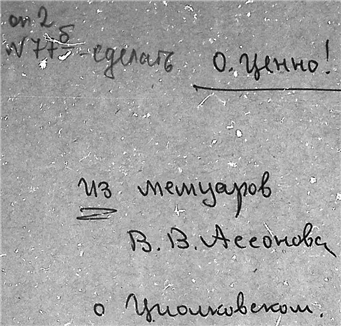 оп 2
№ 77б - сделать
О. Ценно!
Из мемуаров
В. В. Ассонова
о Циолковском.